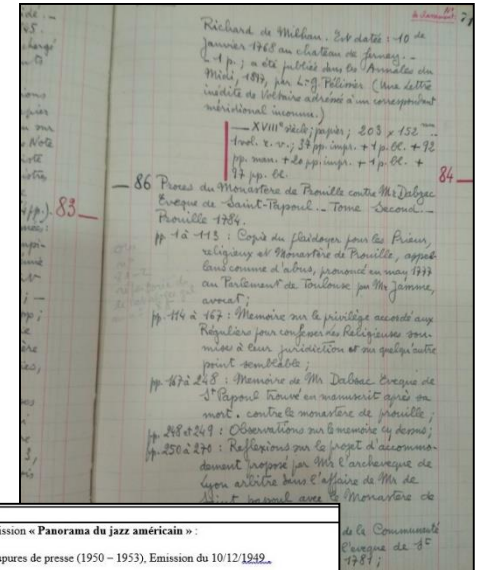 Richard de Milhau. Est datée : 10 de
Janvier 1768 au chateau de ferney. _
_ 1 p ; a été publiée dans les Annales du
Midi, 1897, par L-G. Pélissier (Une lettre
inédite de Voltaire adressée à un correspondant
méridional inconnu.)
— XVIIIe siècle ; papier ; 203 x 152 mm
1 vol. r. v. ; 37 pp. impr. + 1 p. bl. + 92
pp. man. + 20 pp. impr. + 1 p. bl. +
97 pp. bl. 84 _
83 _
_ 86 Proces du Monastere de Prouille contre Mr Dabzac
Eveque de Saint-Papoul. _ Tome Second. _
Prouille 1784.
pp. 1 à 113 : Copie du plaidoyer pour les Prieur,
religieux et Monastere de Prouille, appel-
lans comme d'abus, prononcé en may 1777
au Parlement de Toulouse par Me Jamme,
avocat ;
pp. 114 à 167 : Memoire sur le privilège accordé aux
Réguliers pour confesser des Religieuses sou-
mises à leur juridiction et sur quelqu'autre
point semblable ;
pp. 167 à 248 : Memoire de Mr Dabzac Eveque de
St Papoul trouvé en manuscrit après sa
mort . contre le monastere de prouille ;
pp. 248 et 249 : Observations sur le memoire cy dessus ;
pp. 250 à 270 : Reflexions sur le projet d'accommo-
dement proposé par Mr l'archeveque de
Lyon arbitre dans l'affaire de Mr de
Saint papoul avec le Monastère de
de la Communeauté
l'eveque de St
1781 ;
ission « Panorama du jazz américain » :
upures de presse (1950 – 1953), Emission du 10/12/1949